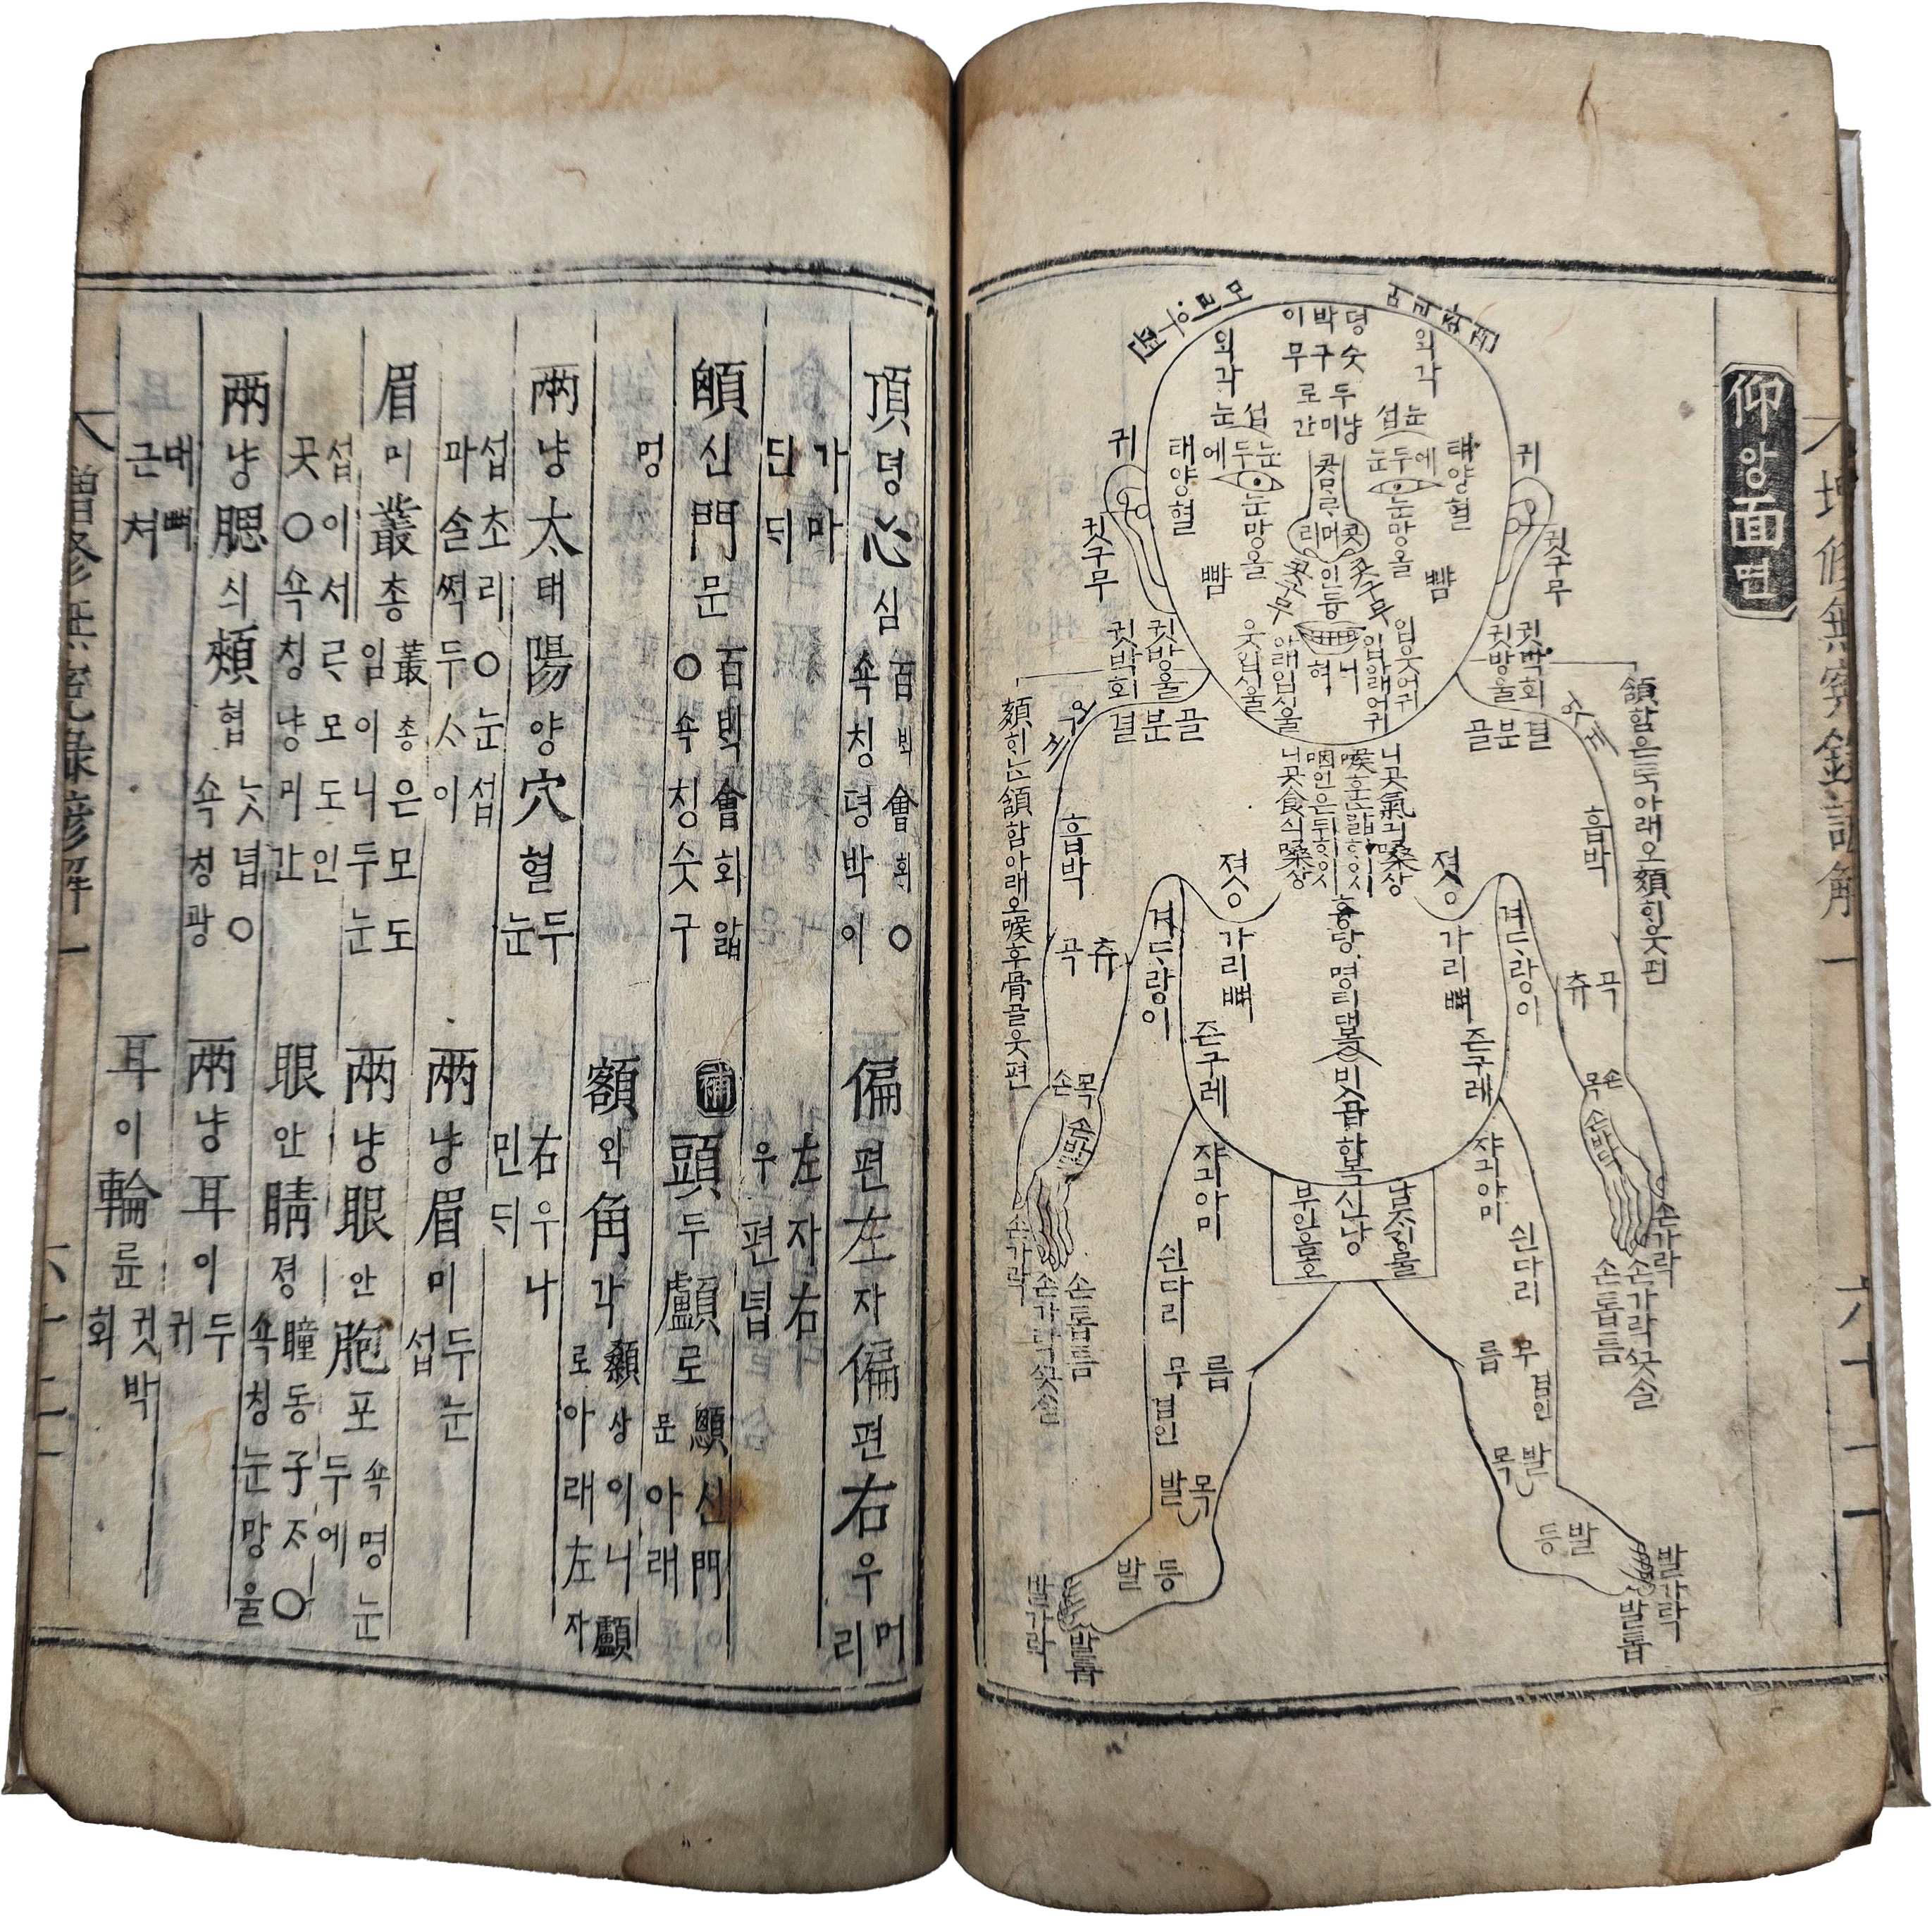 仰앙面면
뎡박이
숫구무
두로
냥미간
외각
외각
눈섭
눈섭
눈두에
눈두에
눈망올
눈망올
태양혈
태양혈
귀
귀
귓구무
귓구무
콧ᄆᆞᄅᆞ
콧머리
콧구무
콧구무
인듕
뺨
뺨
웃입시울
아래입시울
입아래어귀
입웃어귀
니
혀
귓박회
귓방울
귓박회
귓방울
頷함은ᄐᆞᆨ아래오頦ᄒᆡ웃편
頦ᄒᆡᄂᆞᆫ頷함아래오喉후骨골웃편
결분골
결분골
엇게
엇게
喉후ᄂᆞᆫ앏ᄒᆡ이시니곳氣긔嗓상
咽인은뒤ᄒᆡ이시니곳食식嗓상
흉당
명리
ᄇᆡᆺ곱
합복
졋
졋
흡박
흡박
겨ᄃᆞ랑이
겨ᄃᆞ랑이
가리뼈
가리뼈
츅곡
츅곡
즌구레
즌구레
손목
손목
손ᄲᅡ닥
손가락
손가락
손톱틈
손톱틈
손가락ᄭᅳᆺ솔
손가락ᄭᅳᆺ솔
쟈긔야미
쟈긔야미
신낭
부인음호
쉰다리
쉰다리
무릅
무릅
겸인
겸인
발목
발목
발등
발등
발가락
발가락
발톱
발톱
頂뎡心심百ᄇᆡᆨ會회○쇽칭뎡박이
偏편左자偏편右우머리
가마단듸
左자右우편녑
顖신門문百ᄇᆡᆨ會회앏○쇽칭숫구
補頭두顱로顖신門문아래
멍
額외角각顙상이니顱로아래左자
兩냥太태陽양穴혈두눈
右우나민듸
섭초리○눈섭파솔쩍두ᄉᆞ이
兩냥眉미두눈섭
眉미叢총叢총은모도임이니두눈
兩냥眼안胞포쇽명눈두에
섭이서ᄅᆞ모도인곳○쇽칭냥미간
眼안睛졍瞳동子ᄌᆞ○쇽칭눈망울
兩냥腮싀頰협ᄂᆞᆺ녑○쇽칭광
兩냥耳이두귀
대뼈근쳐
耳이輪륜귓박회
增修無寃錄諺解一